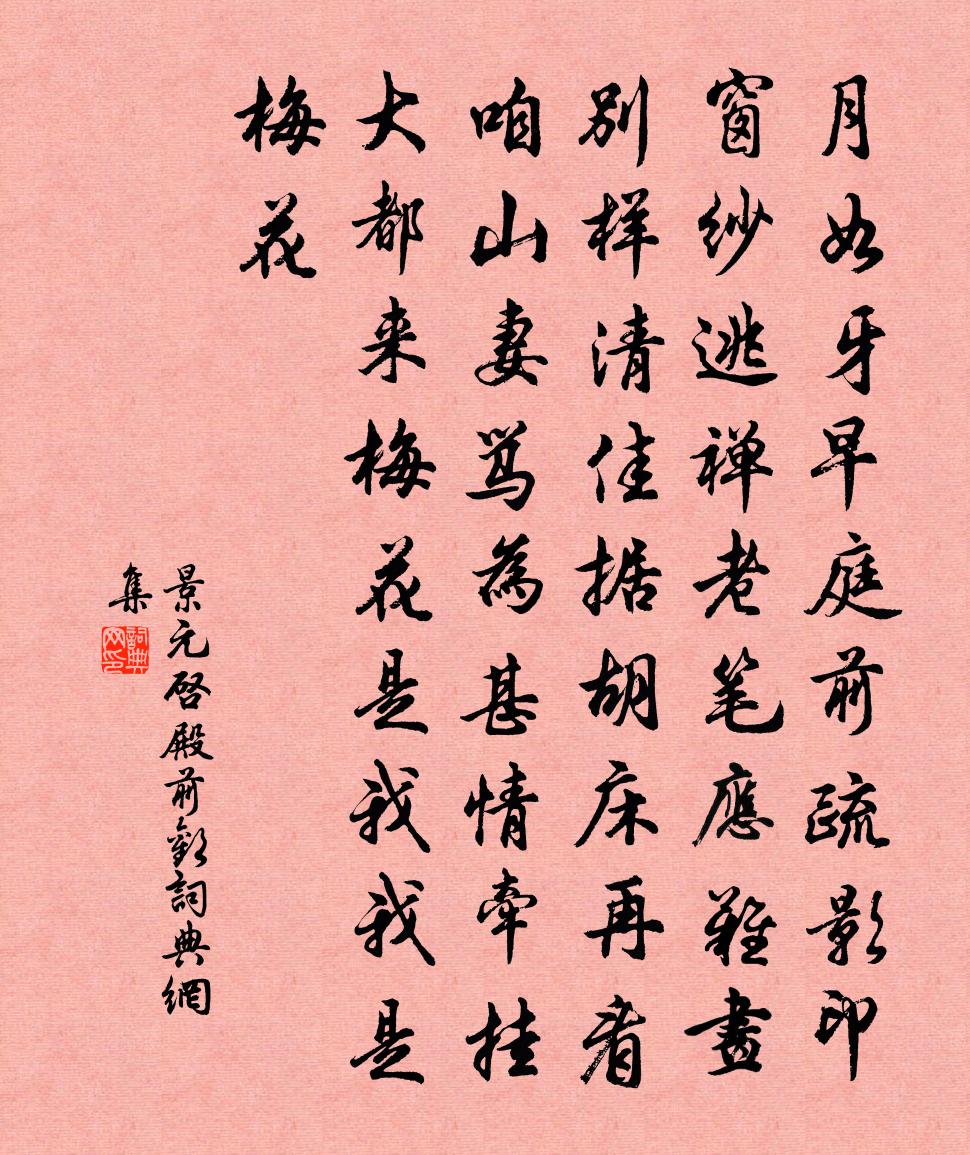 月如牙早庭前疏影印
窗纱逃禅老笔應難畫
别样清佳据胡床再看
咱山妻骂為甚情牽挂
大都来梅花是我我是
梅花
景元啓殿前歡詞典網
集
詞典
网印